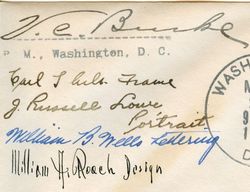 V. C. Burke
P M., Washington, D. C.
Carl T. Arlt Frame
J. Russell Lowe
Portrait
William B. Wells Lettering
William A. Roach Design
WASH